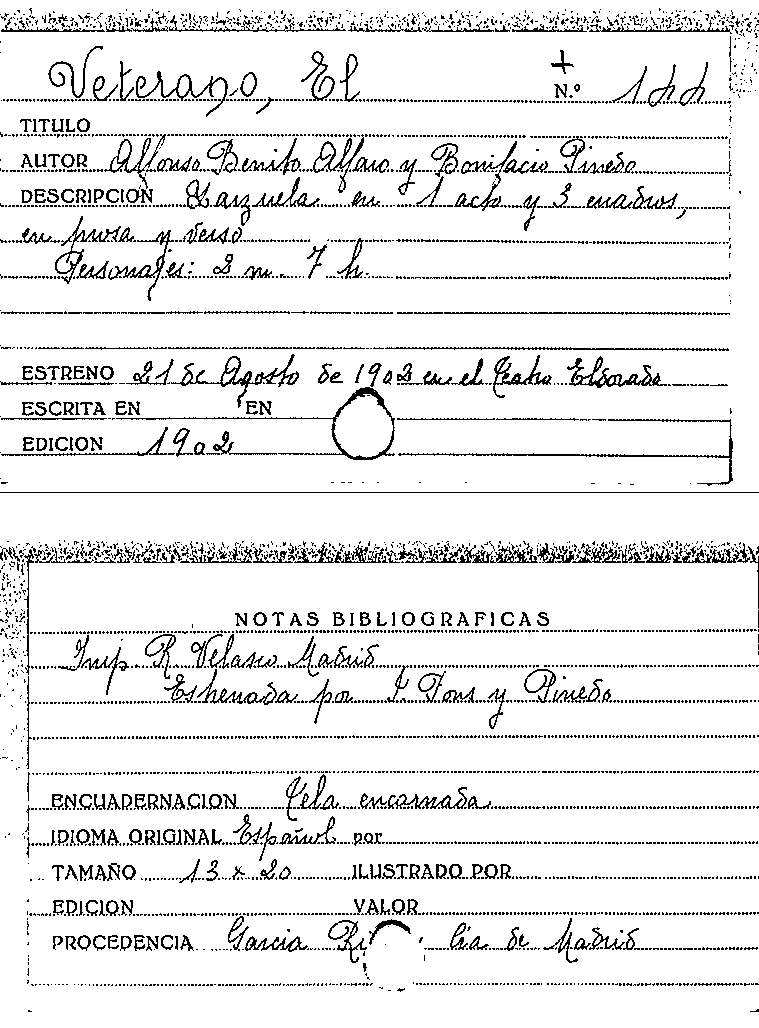 Veterano, El + N.º 144
TITULO
AUTOR Alfonso Benito Alfaro y Bonifacio Pinedo
DESCRIPCION Zarzuela en 1 acto y 3 cuadros,
en prosa y verso
Personajes: 2 m. 7 h.
ESTRENO 21 de Agosto de 1902 en el Teatro Eldorado
ESCRITA EN EN
EDICION 1902
NOTAS BIBLIOGRAFICAS
Imp. R. Velasco Madrid
Estrenada por J. Pons y Pinedo
ENCUADERNACION Tela encarnada
IDIOMA ORIGINAL Español por
TAMAÑO 13 x 20 ILUSTRADO POR
EDICION VALOR
PROCEDENCIA Garcia de Madrid